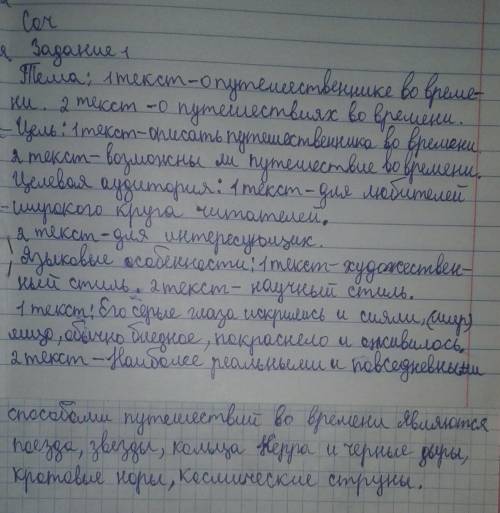 Соч
Задание 1
Тема: 1 текст - о путешественнике во време-
ни. 2 текст - о путешествиях во времени.
Цель: 1 текст - описать путешественника во времени
2 текст - возможны ли путешествие во времени.
Целевая аудитория: 1 текст - для любителей
широкого круга читателей.
2 текст - для интересующих.
Языковые особенности: 1 текст - художествен-
ный стиль. 2 текст - научный стиль.
1 текст: Его серые глаза искрились и сияли,
лицо, обычно бледное, покраснело и оживилось.
2 текст - Наиболее реальными и повседневными
способами путешествий во времени являются
поезда, звезды, кольца Керра и черные дыры,
кротовые норы, космические струны.